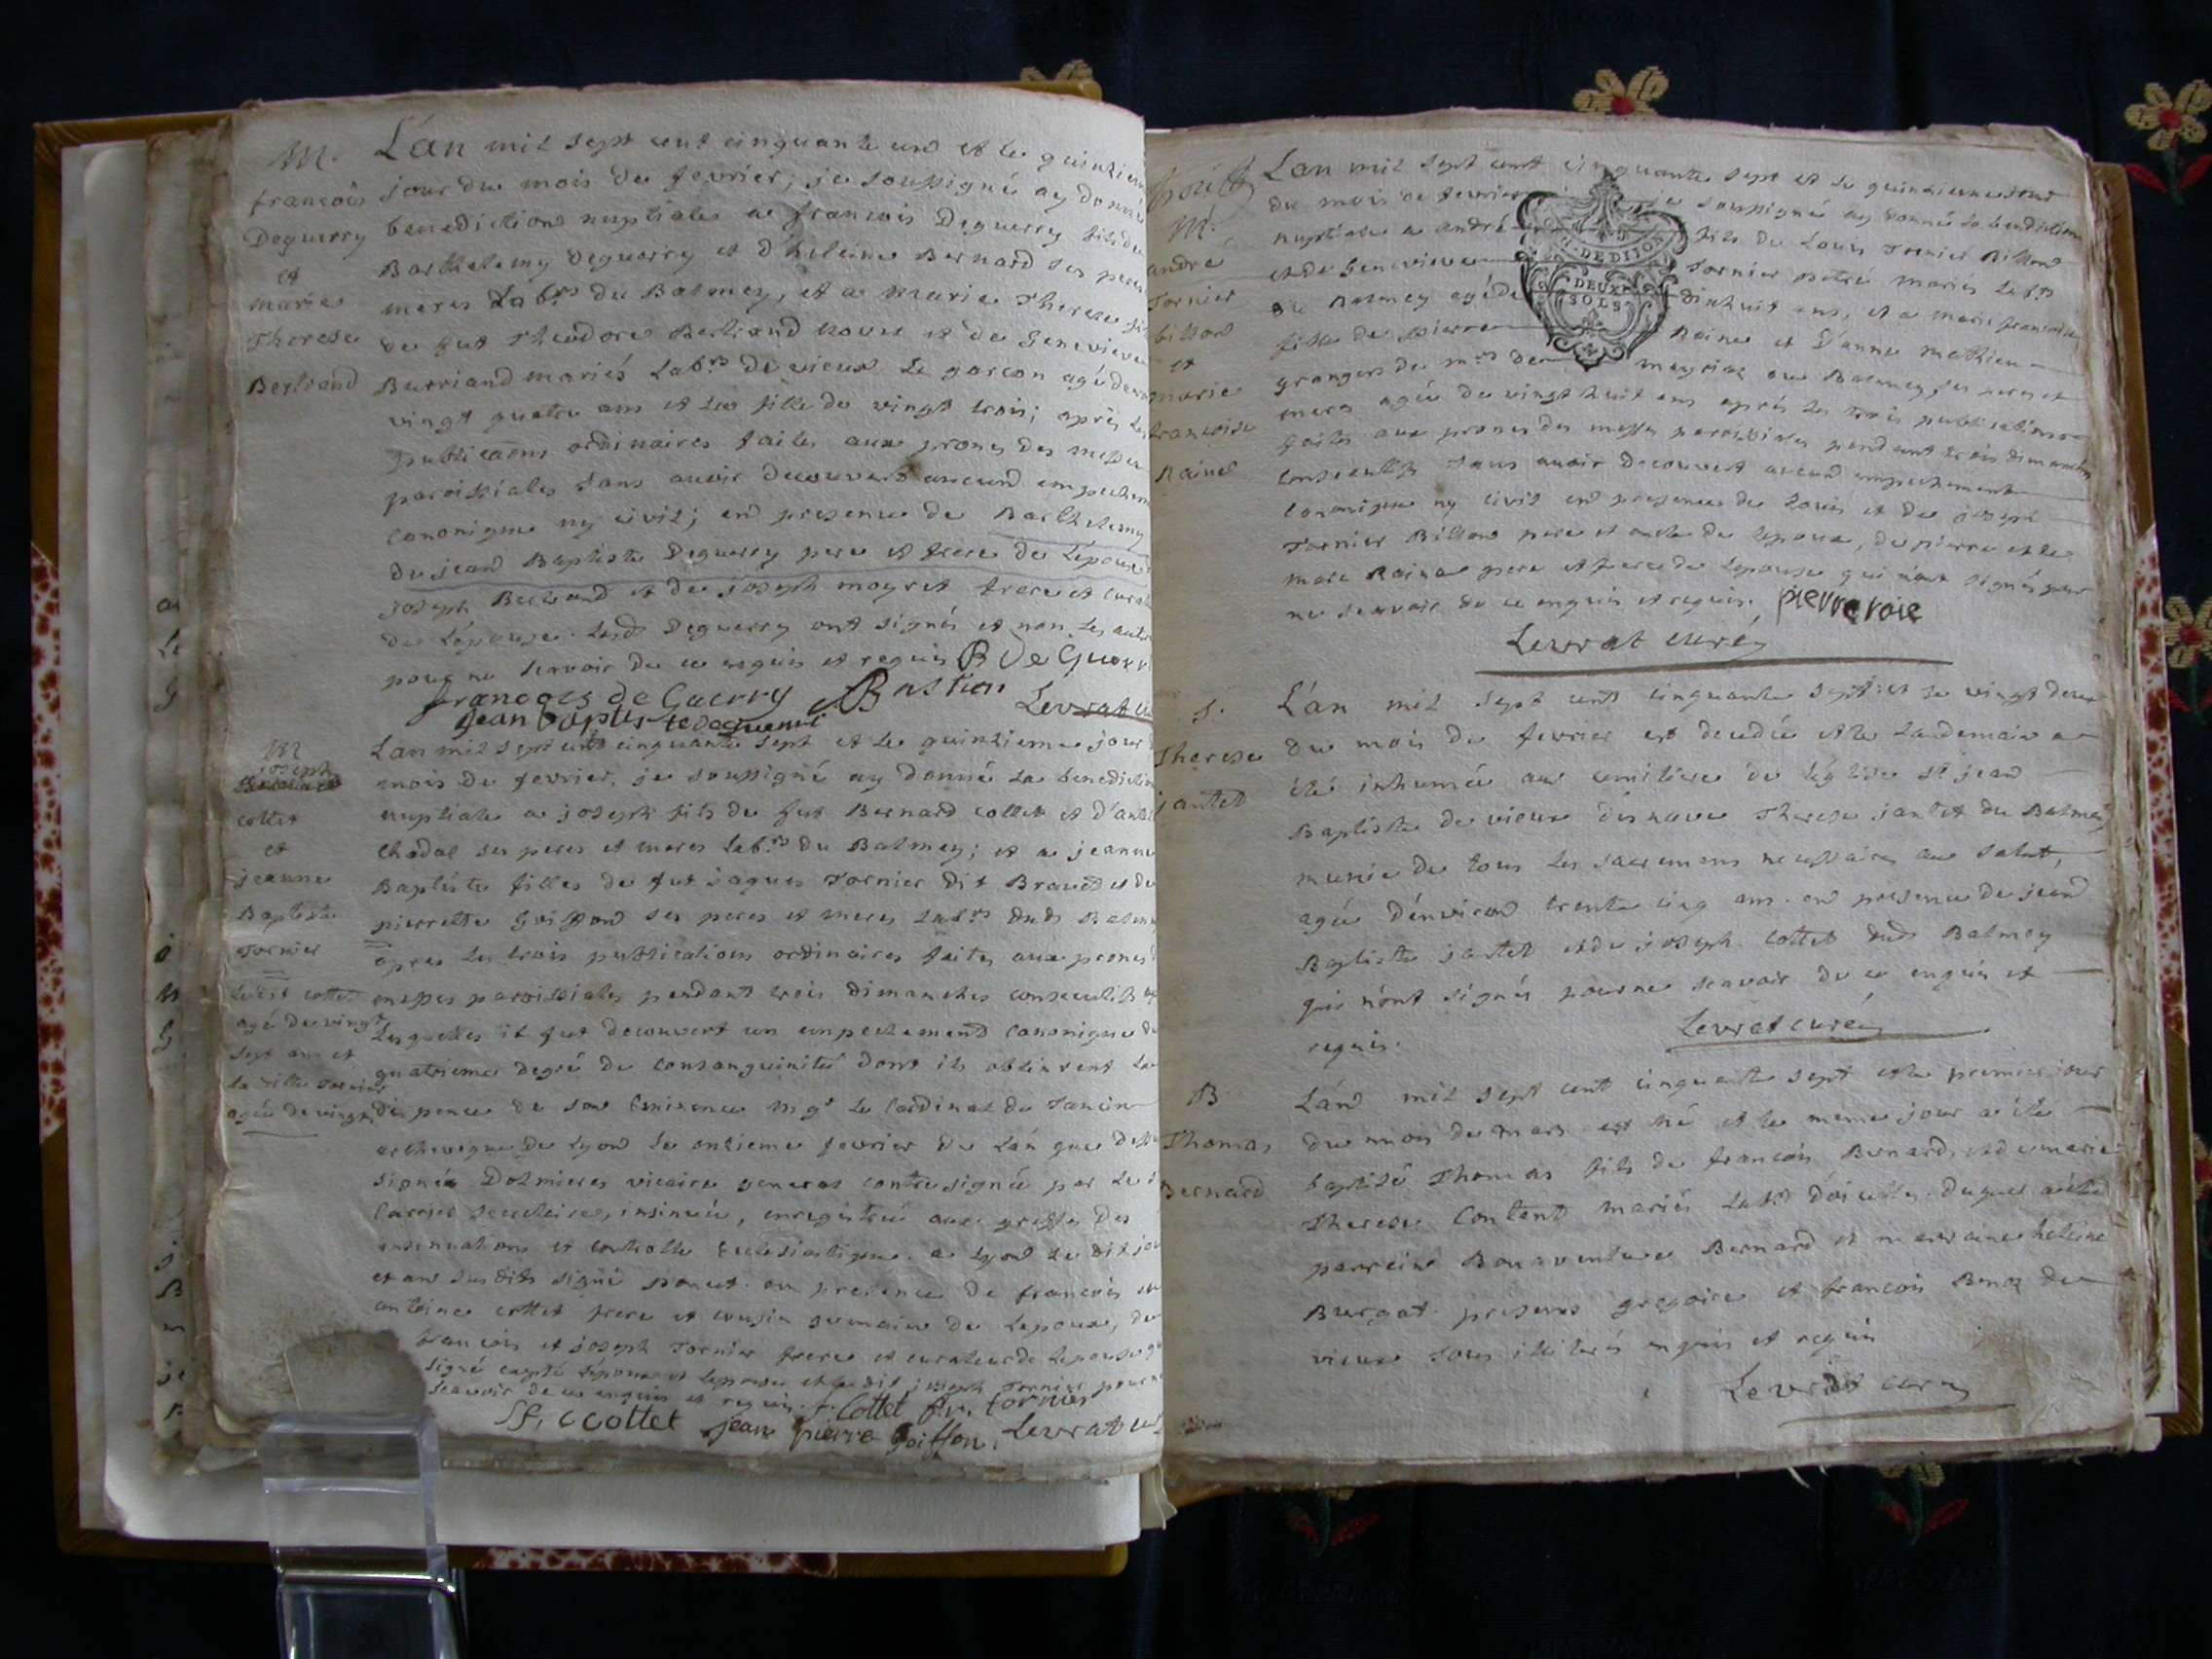 M.
françois
Deguerry
et
marie
Therese
Bertrand
L'an mil sept cent cinquante une et le quinzien
jour du mois de fevrier, je soussigné ay donné
benediction nuptiale a françois Deguerry fils de
Barthelemy Deguerry et d'heleine Bernard ses peres
meres Lab.rs du Balmey, et a Marie Therese fi
de fut Theodore Bertrand et de Genevieve
Burriand mariés Lab.rs de vieux Le garçon agé de
vingt quatre ans et la fille de vingt trois; après les
publications ordinaires faites aux prones des messes
paroissiales sans avoir decouvert aucund empechem
canonique ny civil; end presence de Barthelemy
du jean Baptiste Deguerry pere et frere de L'epoux
joseph Bertrand et de joseph moyret frere et curat
de L'epouse. Lesd. Deguerry ont signés et non les autre
pour ne scavoir de ce enquis et requis B De Guerr
francoes de Guerry Bastian Levrat cu
jean baptiste deguerri
M
joseph
cottet
et
jeanne
Baptiste
Tornier
Ledit cottet
agé de vingt
sept ans et
la ditte Tornier
agée de vingt
Lan mil sept cent cinquante sept et le quinzieme jour d
mois de fevrier, je soussigné ay donné la benediction
nuptiale a joseph fils de fut Bernard Cottet et d'
Chadal ses peres et meres lab.rs du Balmey; et a jeanne
Baptiste filles de fut jaques Tornier dit Braved et de
pierrette Goiffond ses peres et meres lab.rs dud. Balm
apres les trois publications ordinaires faites aux prones d
messes paroissiales pendant trois dimanches consecutifs ap
lesquelles il fut decouvert un empechement canonique du
quatrieme degré de consanguinité dont ils obtinrent la
dispence de son Eminence mg.r Le Cardinal de Tancin
archeveque de Lyon le onzieme fevrier de L'an que dess
signée Dolmieres vicaire general contresigné par Le
Carrier secretaire, insinuée, enregistrée aux greffes des
insinuations et controlle Ecclesiastique a Lyon le dit jour
et an susdits signé poncet. en presence de françois et
antoine cottet frere et cousin germain de L'epoux, de
françois et joseph Tornier frere et curateur de L'epouse q
signé excepté L'epoux et L'epouse et le dit joseph Tornier pour n
scavoir de ce enquis et requis. f. Cottet fr. tornier
Sf. ccottet jean pierre goiffon. Levrat cu
M.
andré
Tornier
billon
et
marie
francoise
Raine
Lan mil sept cent cinquante sept et le quinzieme jour
du mois de fevrier je soussigné ay donné la benediction
nuptiale a andré fils de Louis Tornier Billon
et de Genevieve Tornier mariés lab.rs
du Balmey agé de dixhuit ans, et a marie francoise
fille de pierre Raine et d'anne mathieu
grangers de m.rs de meyriaz au Balmey, ses peres et
meres agée de vingt huit ans après les trois publications
faites aux prones des messes paroissiales pendant trois dimanches
consecutifs sans avoir decouvert aucund empechement
canonique ny civil end presence de Louis et de joseph
Tornier Billon pere et oncle de lepoux, de pierre et de
marc Raine pere et frere de Lepouse qui n'ont signés pour
ne scavoir de ce enquis et requis. pierre roie
Levrat curé
GEN. DE DIJON
DEUX
SOLS
S.
Therese
jantet
L'an mil sept cent cinquante sept et le vingt deux
du mois de fevrier est decedée et le landemain a
été inhumée au cemitiere de L'église S.t jean
Baptiste de vieux disnave Therese jantet du Balmey
munie de tous les sacremens necessaires au salut,
agée d'environd trente cinq ans. end presence de jean
Baptiste jantet et de joseph Cottet dud. Balmey
qui n'ont signés pour ne scavoir de ce enquis et
requis.
Levrat curé
B
Thomas
Bernard
L'and mil sept cent cinquante sept et le premier jour
du mois de mars est né et le meme jour a été
baptisé Thomas fils de francois Bernard et de marie
Therese Content mariés lab.rs duquel a été
parrein Bonaventure Bernard et marraine heleine
Burgat. presens gregoire et francois Benoz de
vieux tous illiterés enquis et requis
Levrat curé